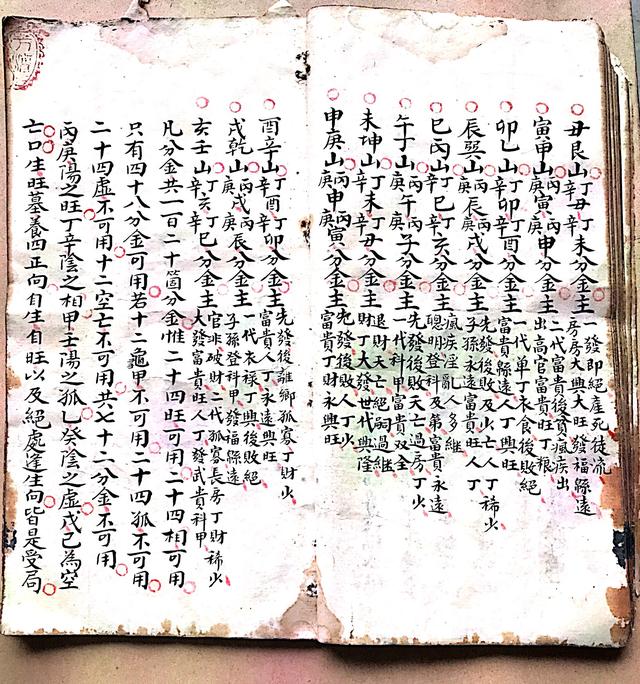 丑艮山丁辛丑丁辛未分金主一發即絕產死徒流
房房大興大旺發福縣遠
寅甲山丙庚寅丙庚申分金主二代富貴後貧瘋疾出
出高官富貴旺丁粮
卯乙山丁辛卯丁辛酉分金主一代單丁衣食後敗絕
富貴縣遠人丁興旺
辰巽山丙庚辰丙庚戌分金主先發後敗及少亡人丁稀少
子孫永遠富貴旺人丁
巳丙山丁辛巳丁辛亥分金主瘋疾淫亂人多継
聰明登科及第富貴永遠
午丁山丙庚午丙庚子分金主先發後敗夭亡過房丁少
一代科甲富貴双全
未坤山丁辛未丁辛丑分金主退財夭亡絕嗣過継
財丁大發世代興隆
申庚山丙庚申丙庚寅分金主先發後敗人丁少
富貴丁財永興旺
酉辛山丁辛酉丁辛卯分金主先發後離鄉孤寡丁財少
富貴人丁永遠興旺
戌乾山丙庚戌丙庚辰分金主一代衣禄丁興後敗絕
子孫登科甲發福縣遠
亥壬山丁辛亥丁辛巳分金主官非破財二代孤寡長房丁財稀少
大發富貴旺人丁發武貴科甲
凡分金共一百二十箇分金惟二十四旺可用二十四相可用
只有四十八分金可用若十二龜甲不可用二十四孤不可用
二十四虛不可用十二空亡不可用共七十二分金不可用
丙庚陽之旺丁辛陰之相甲壬陽之孤乙癸陰之虛戊己為空
亡口生旺墓養四正向自生自旺以及絕處逢生向皆是受局